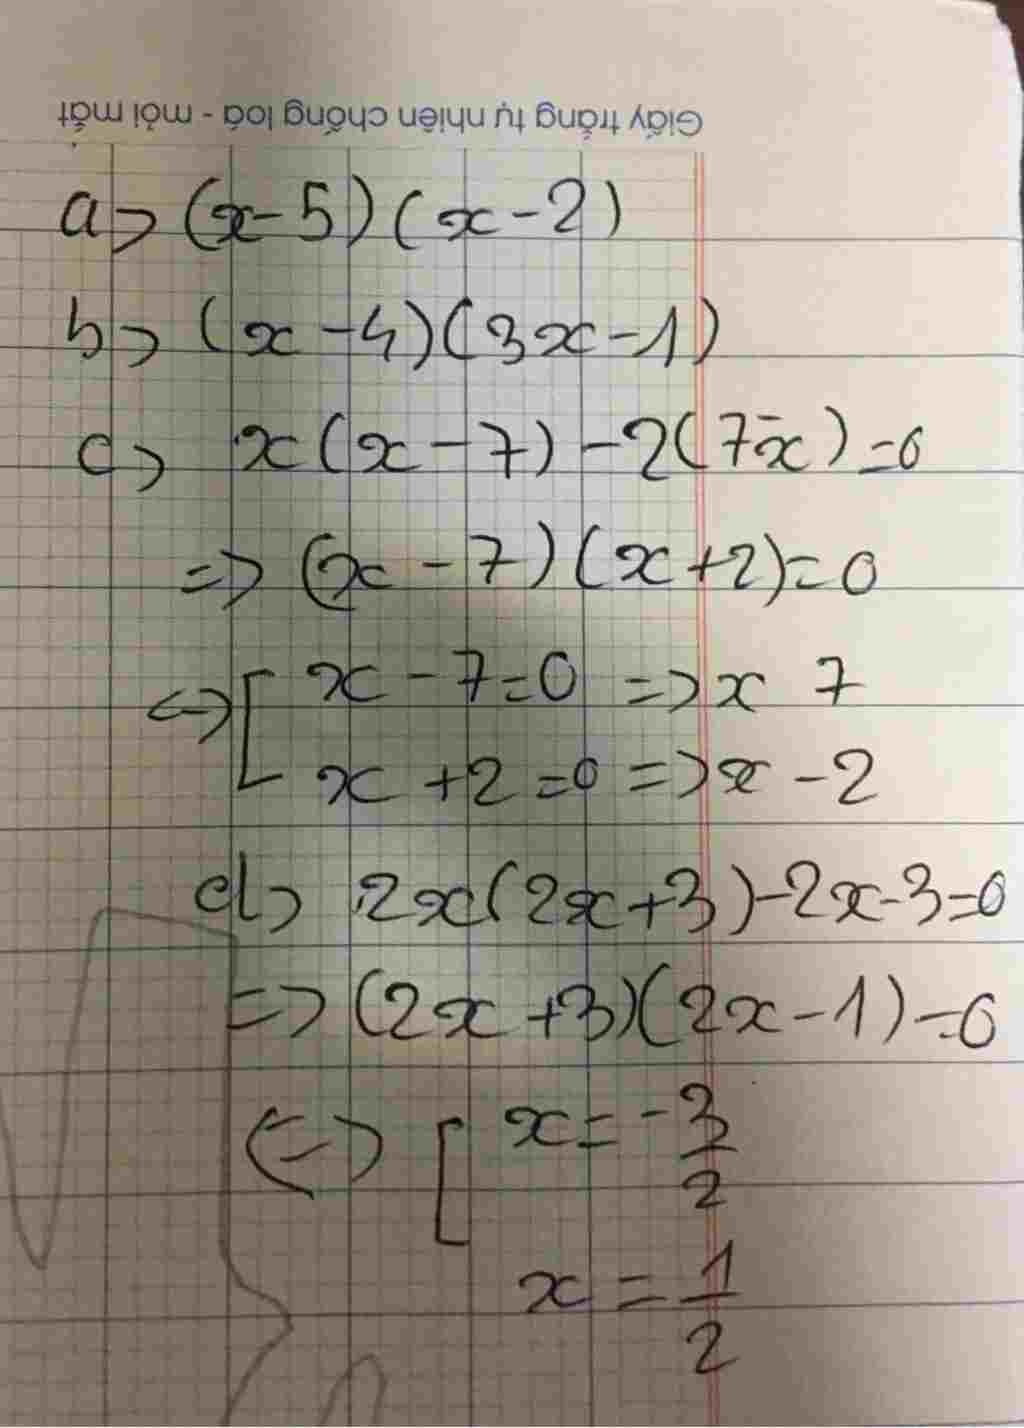 Giấy trắng tự nhiên chống loá - mỏi mắt
a> (x-5)(x-2)
b> (x-4)(3x-1)
c> x(x-7)-2(7-x)=0
=> (x-7)(x+2)=0
<=> [ x-7=0 => x 7
x+2=0 => x -2
d> 2x(2x+3)-2x-3=0
=> (2x+3)(2x-1)=0
<=> [ x = -3/2
x = 1/2